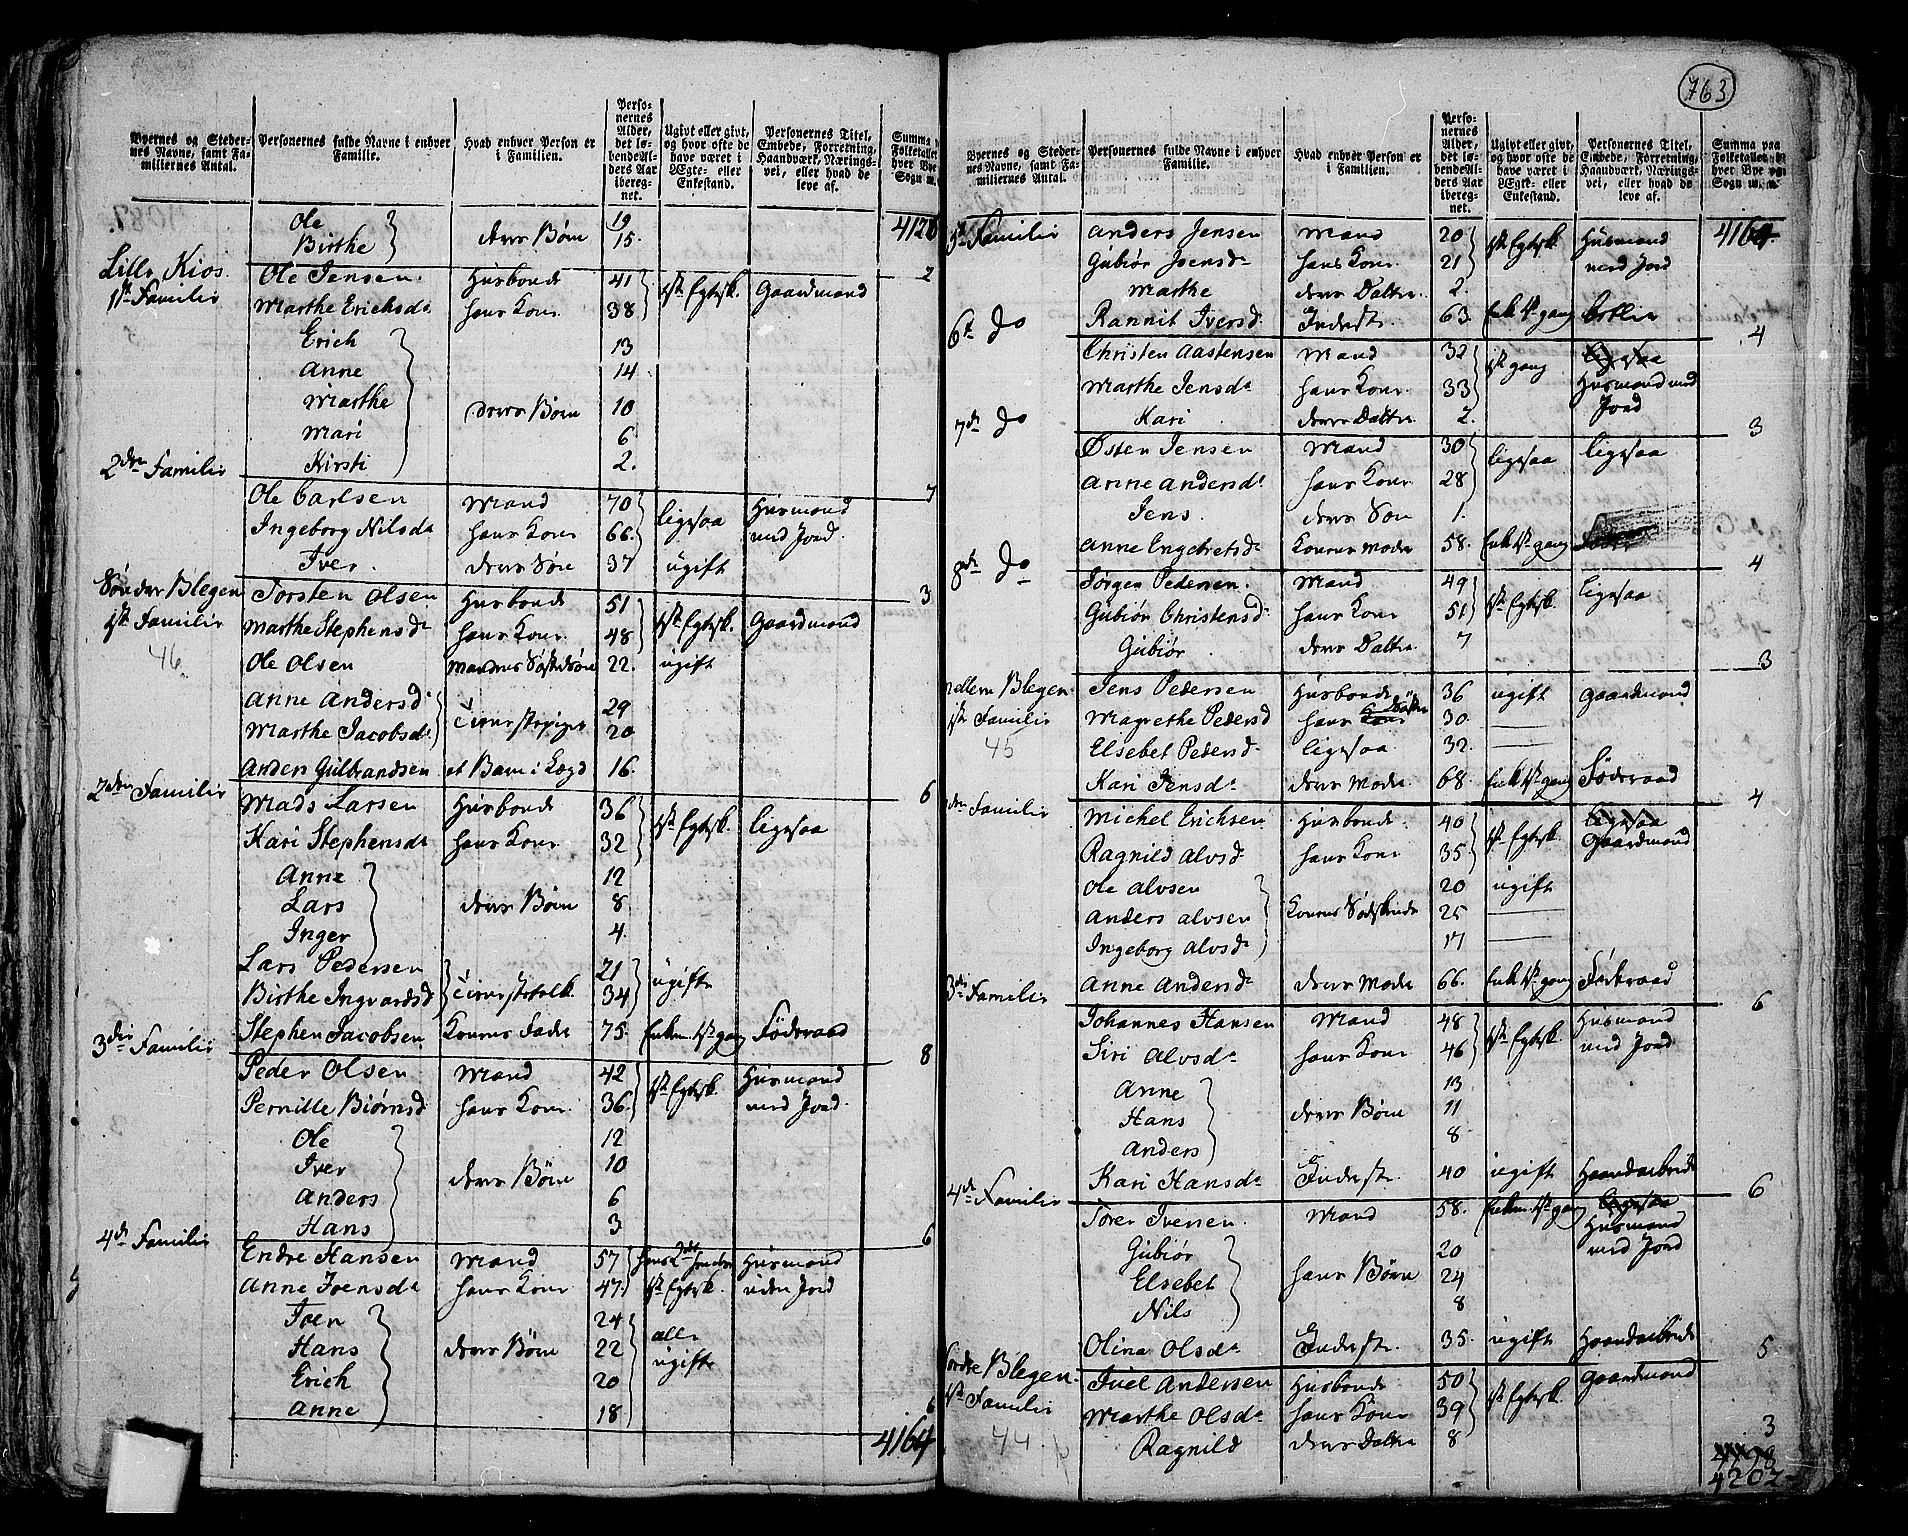 Byernes og Steder-
nes Navne, samt Fa-
miliernes Antal.
Personernes fulde Navne i enhver
Familie.
Hvad enhver Person er
i Familien.
Perso-
nernes
Alder,
det lø-
bende Al-
ders Aar
ibereg-
net.
Ugivt eller givt,
og hvor ofte de
have været i
Ægte- eller
Enkestand.
Personernes Titel,
Embede, Forretning,
Haandværk, Nærings-
vei, eller hvad de
leve af.
Summa
Folketallet
hver Bye
Sogn
Ole 19
Birthe } deres Børn 15.
Lille Kios.
1ste Familie
Ole Jensen Husbonde 41 1ste Egtesk. Gaardmand 2
Marthe Erichsdr hans Kone 38
Erich 13
Anne 14
Marthe deres Børn 10
Mari 6
Kirsti 2.
2den Familie 7
Ole Carlsen Mand 70 ligesaa Husmand
Ingeborg Nilsdr hans Kone 66 med Jord.
Iver deres Søn 37 ugift
Sønder Blegen 3
1ste Familie
46
Torsten Olsen Husbonde 51 1ste Egtesk. Gaardmand
Marthe Stephensdr hans Kone 48
Ole Olsen Mandens Søstersøn 22. ugift
Anne Andersdr 29
Marthe Jacobsdr Tienestepiger 20
Anders Gulbrandsen et Barn i Lægd 16.
2den Familie 6
Mads Larsen Husbonde 36 1ste Egtesk. ligesaa
Kari Stephensdr hans Kone 32
Anne 12
Lars deres Børn 8
Inger 4.
Lars Pedersen 21 ugifte
Birthe Ingvardsd Tienestefolk 34
Stephen Jacobsen Konens Fader 75. Enkem. 1ste gang Føderaad
3die Familie 8
Peder Olsen Mand 42 1ste Egtesk. Husmand
Pernille Biørnsd hans Kone 36. med Jord.
Ole 12
Iver deres Børn 10
Anders 6
Hans 3
4de Familie 6
Endre Hansen Mand 57 Husmand
Anne Joensdr hans Kone 47 1ste Egtesk. uden Jord
Joen 24
Hans deres Børn 22 alle
Erich 20 ugifte
Anne 18
6
4164
763
Byernes og Steder-
nes Navne, samt Fa-
miliernes Antal.
Personernes fulde Navne i enhver
Familie.
Hvad enhver Person er
i Familien.
Perso-
nernes
Alder,
det lø-
bende Al-
ders Aar
ibereg-
net.
Ugivt eller givt,
og hvor ofte de
have været i
Ægte- eller
Enkestand.
Personernes Titel,
Embede, Forretning,
Haandværk, Nærings-
vei, eller hvad de
leve af.
Summa paa
Folketallet
hver Bye
Sogn
5te Familie Anders Jensen Mand 20 1ste Egtesk. Husmand 4164
Gubiør Joensdr hans Kone 21 med Jord
Marthe deres Datter 2
Rannit Iversd. Inderste 63. Enke 1ste gang
6te Do 4
Christen Aastensen Mand 32 1ste gang ligesaa
Marthe Jensdr hans Kone 33 Husmand med
Kari deres Datter 2. Jord
7de Do 3
Østen Jensen Mand 30 ligesaa ligesaa
Anne Andersdr hans Kone 28
Jens. deres Søn 1.
Anne Engebretsdr Konens Moder 58. Enke 1ste gang
8de Do 4
Jørgen Pedersen. Mand 49 1ste Egtesk. ligesaa
Gubiør Christensdr hans Kone 51
Gubiør deres Datter 7
Blegen 3
1ste Familie
45
Jens Pedersen Husbonde 36 ugift Gaardmand
Magrethe Pedersd hans Kone Søster 30.
Elsebet Pedersdr ligesaa 32.
Kari Jensdr deres Moder 68. Enke 1ste gang Føderaad
Familie 4
Michel Erichsen Husbonde 40 1ste Egtesk. ligesaa
Ragnild Alvsdr hans Kone 35 Gaardmand
Ole Alvsen 20 ugift
Anders Alvsen Konens Sødskende 25
Ingeborg Alvsdr 17
Anne Andersdr deres Moder 66. Enke 1ste gang Føderaad
3die Familie 6
Johannes Hansen Mand 48 1ste Egtesk. Husmand
Siri Alvsdr hans Kone 46 med Jord
Anne 13
Hans deres Børn 11
Anders 8
Kari Hansdr Inderste 40 ugift Haandarbeide
4de Familie 6
Torer Iversen. Mand 58. Enkem. 1ste gang ligesaa
Husmand
med Jord
Gubiør 20
Elsebet hans Børn 24
Nils 8
Olina Olsdr Inderste 35. ugift Haandarbeide
Nordre Blegen 5
1ste Familie
44
Juel Andersen Husbonde 50 1ste Egtesk. Gaardmand
Marthe Olsdr hans Kone 39
Ragnild deres Datter 8
3
4202